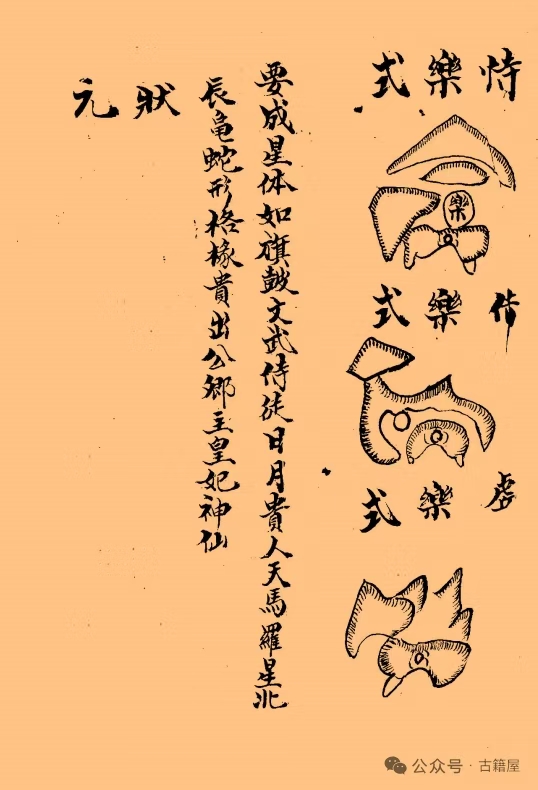 恃樂式
樂
樂式
虚樂式
要成星体如旗皷文武侍徒日月貴人天馬羅星北
辰亀蛇形格椽貴出公郷主皇妃神仙
狀元
公众号·古籍屋